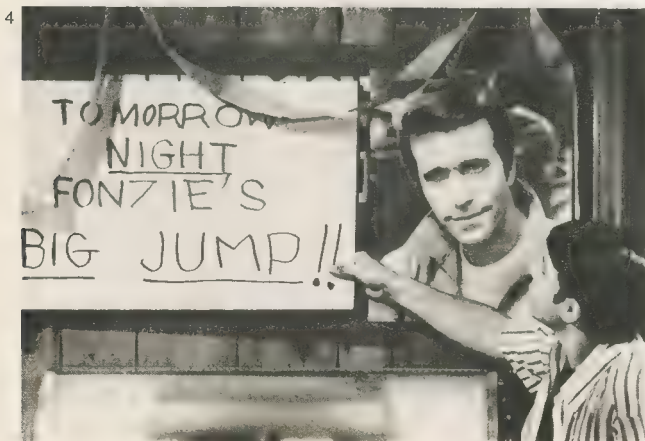 4
TOMORROW
NIGHT
FONZIE'S
BIG JUMP!!